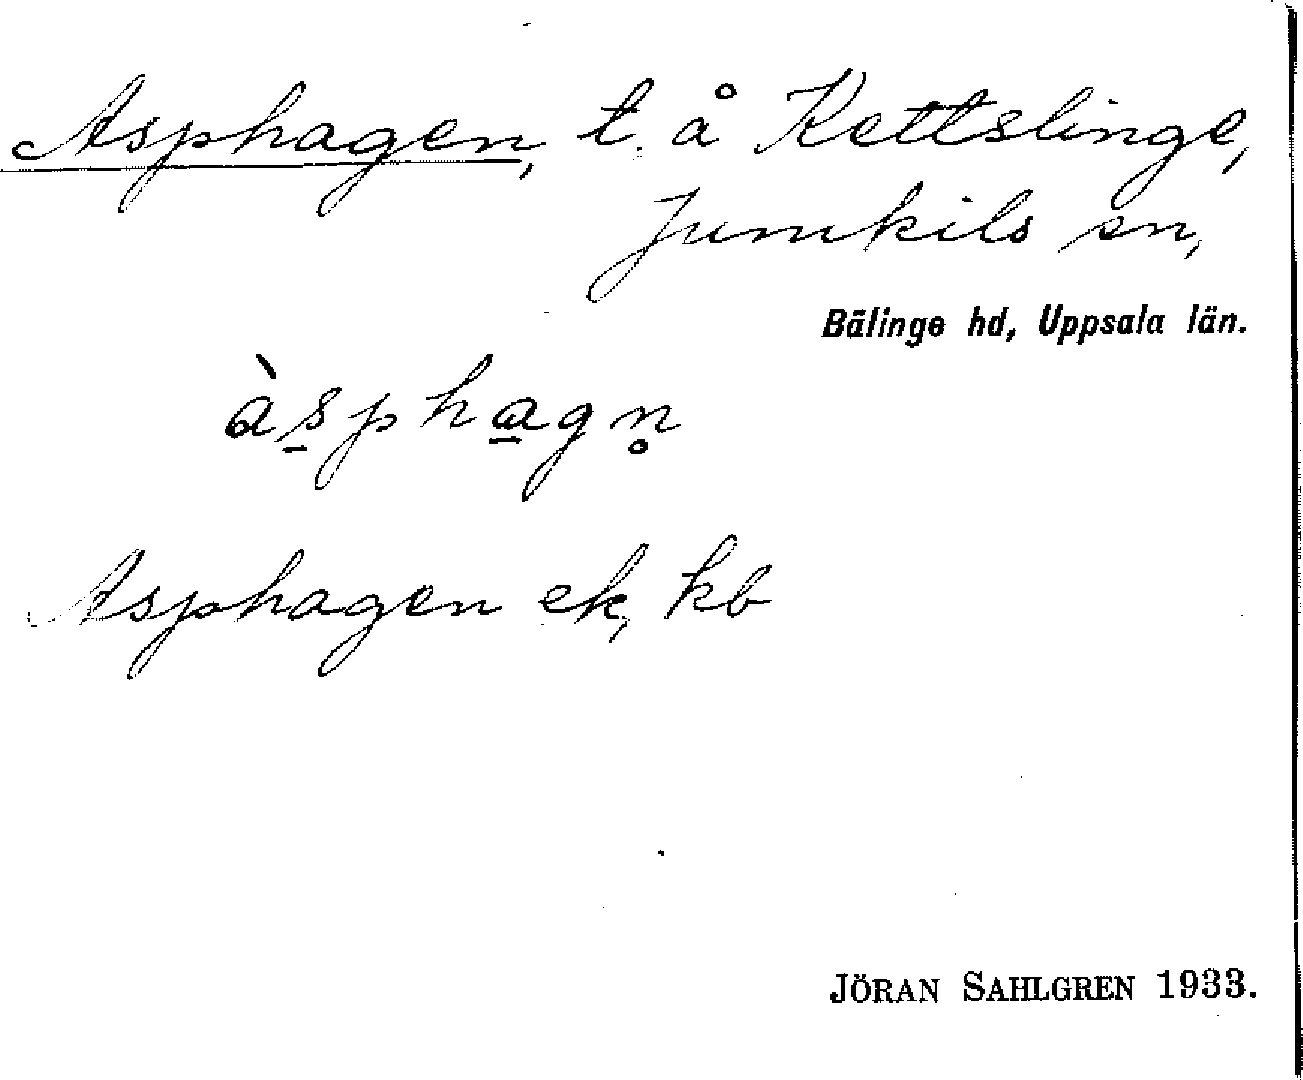 Asphagen, t. å Kettslinge,
Jumkils sn,
Bälinge hd, Uppsala län.
às̠pha̠gn̥
Asphagen ek, kb
JÖRAN SAHLGREN 1933.